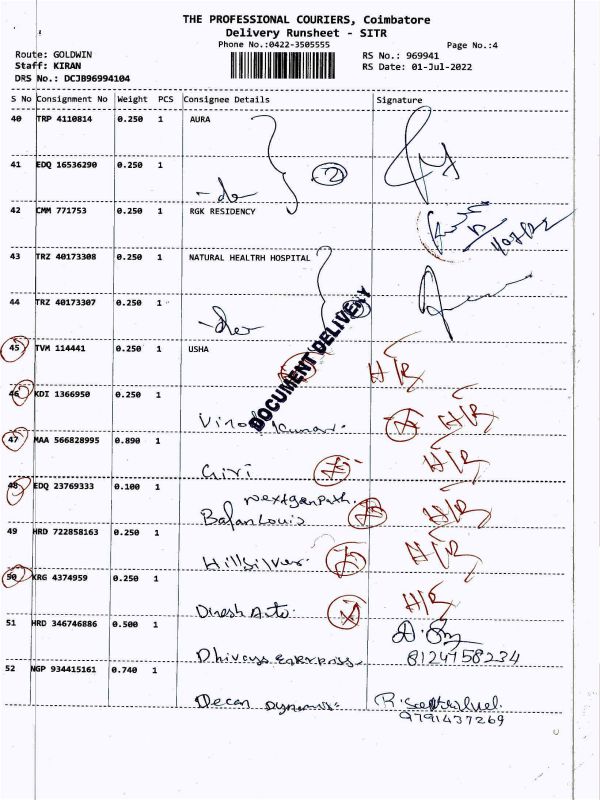 THE PROFESSIONAL COURIERS, Coimbatore
Delivery Runsheet - SITR
Phone No.:0422-3505555 Page No.:4
Route: GOLDWIN RS No.: 969941
Staff: KIRAN RS Date: 01-Jul-2022
DRS No.: DCJB96994104
S No Consignment No Weight PCS Consignee Details Signature
40 TRP 4110814 0.250 1 AURA
41 EDQ 16536290 0.250 1
2
-do
42 CMM 771753 0.250 1 RGK RESIDENCY
43 TRZ 40173308 0.250 1 NATURAL HEALTRH HOSPITAL
44 TRZ 40173307 0.250 1
-do
DOCUMENT DELIVERY
45 TVM 114441 0.250 1 USHA
H/R
46 KDI 1366950 0.250 1
Vinod Kumar. H/R
47 MAA 566828995 0.890 1
Giri H/R
48 EDQ 23769333 0.100 1
Balan Louis H/R
49 HRD 722858163 0.250 1
Hillsilver. H/R
50 KRG 4374959 0.250 1
Dinesh Auto. H/R
51 HRD 346746886 0.500 1
8124758234
52 NGP 934415161 0.740 1
Decan Dynamis.
9791437269